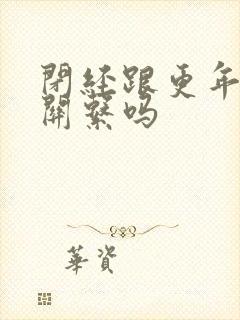 閉經跟更年
關繫嗎
華資